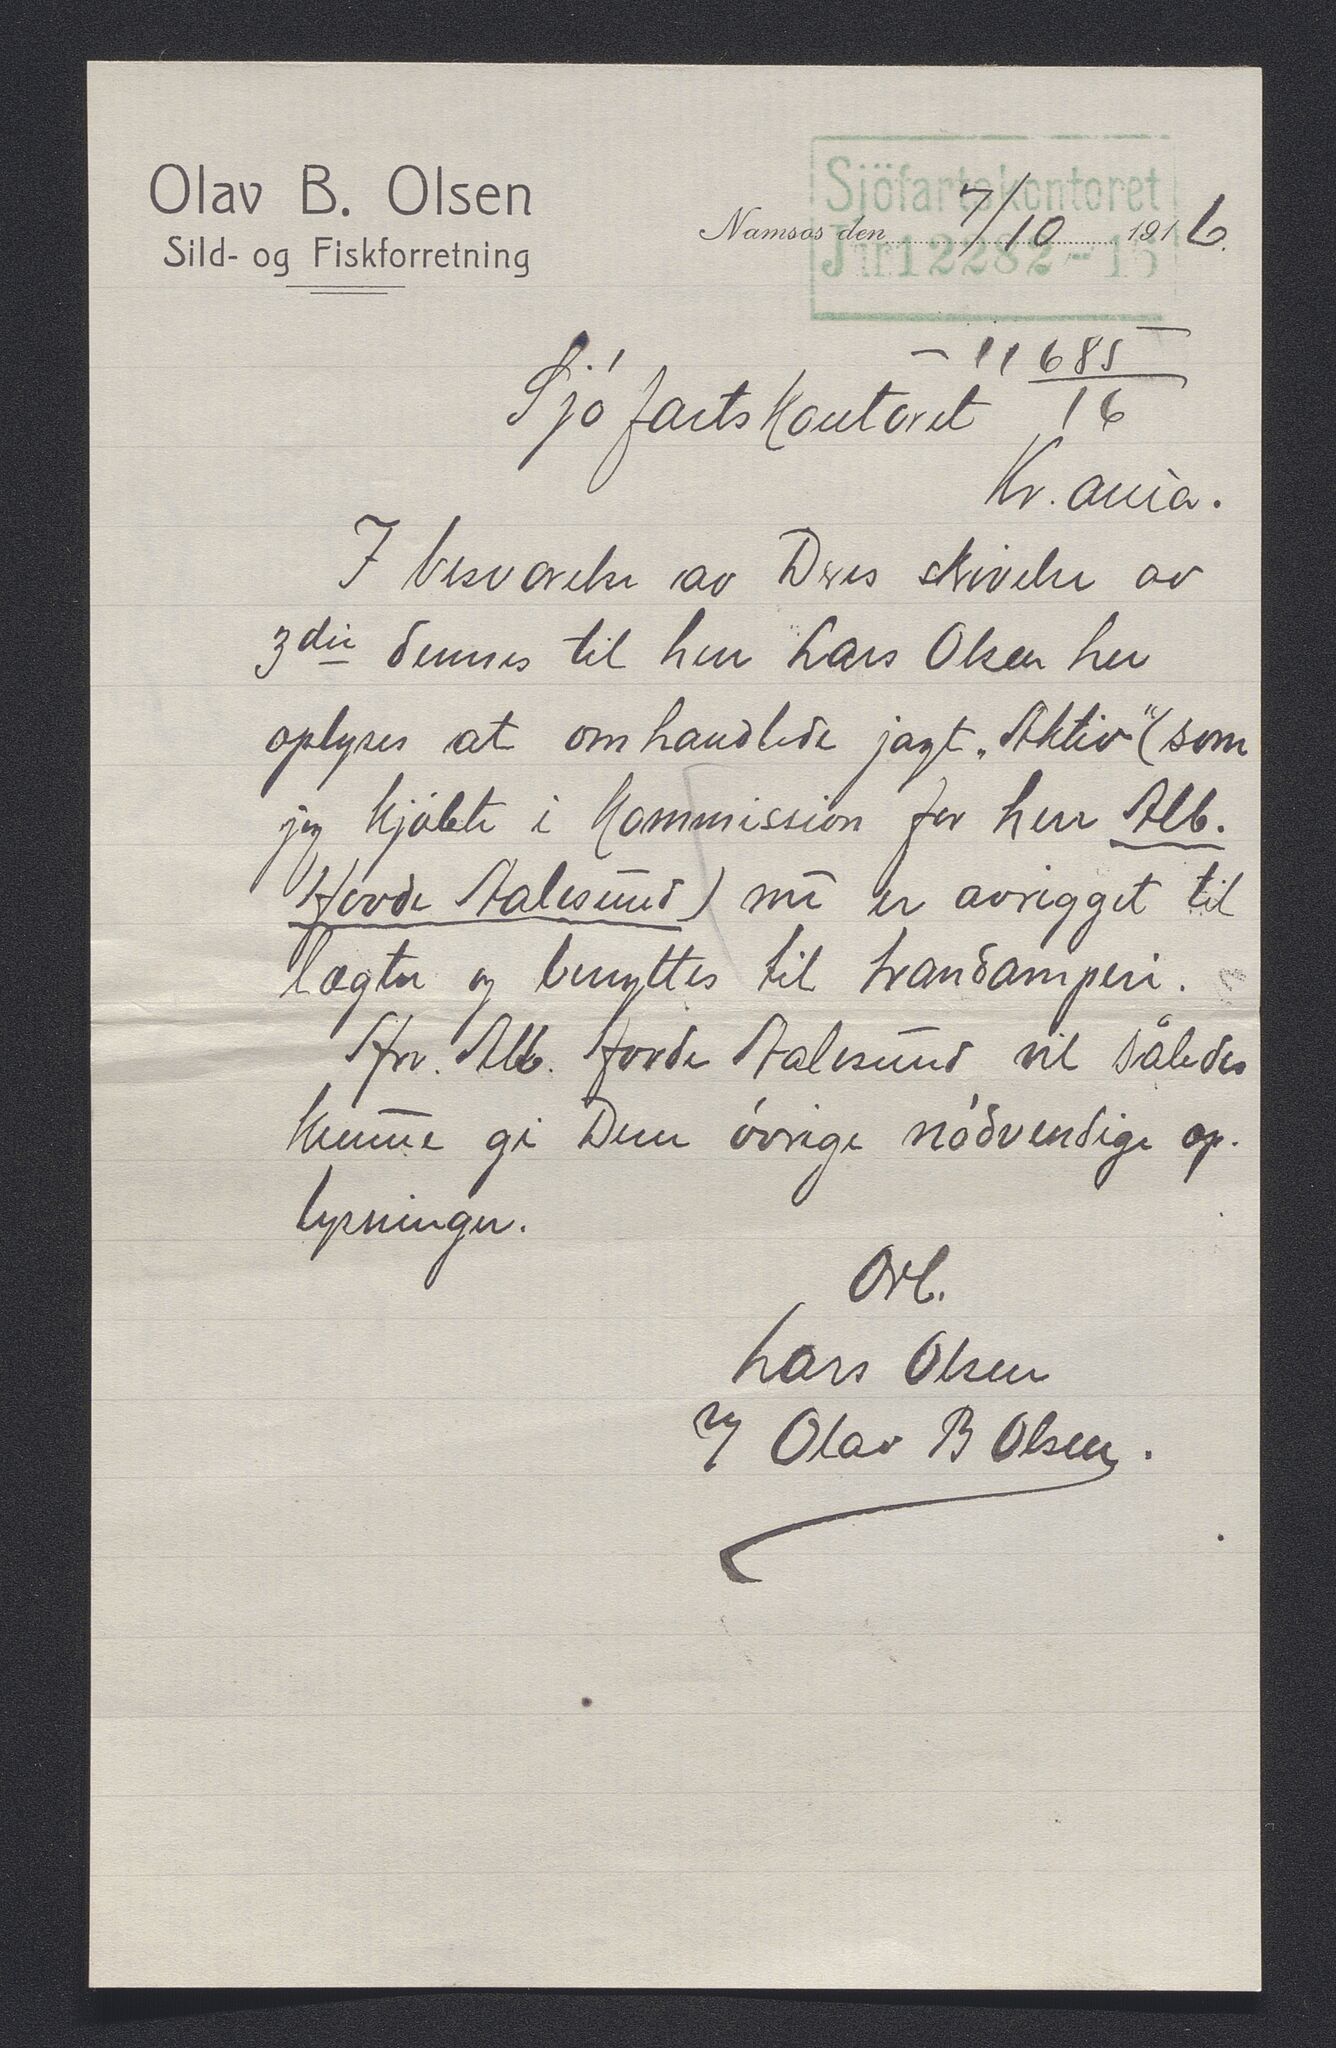 Olav B. Olsen
Sild- og Fiskforretning
Sjöfartskontoret
Jnr 12282-16
Namsos den 7/10 1916.
- 11685
16
Sjófartskontoret
Kr.ania.
I besvarelse av Deres skrivelse av
3die dennes til herr Lars Olsen her
oplyses at omhandlede jagt „Aktiv" (som
jeg kjóbte i kommission for herr Alb.
Hovde Aalesund) nu er avrigget til
lægter og benyttes til trandamperi.
Hr. Alb. Hovde Aalesund vil således
kunne gi Dem óvrige nódvendige op-
lysninger.
Ærb.
Lars Olsen
Olav B Olsen.